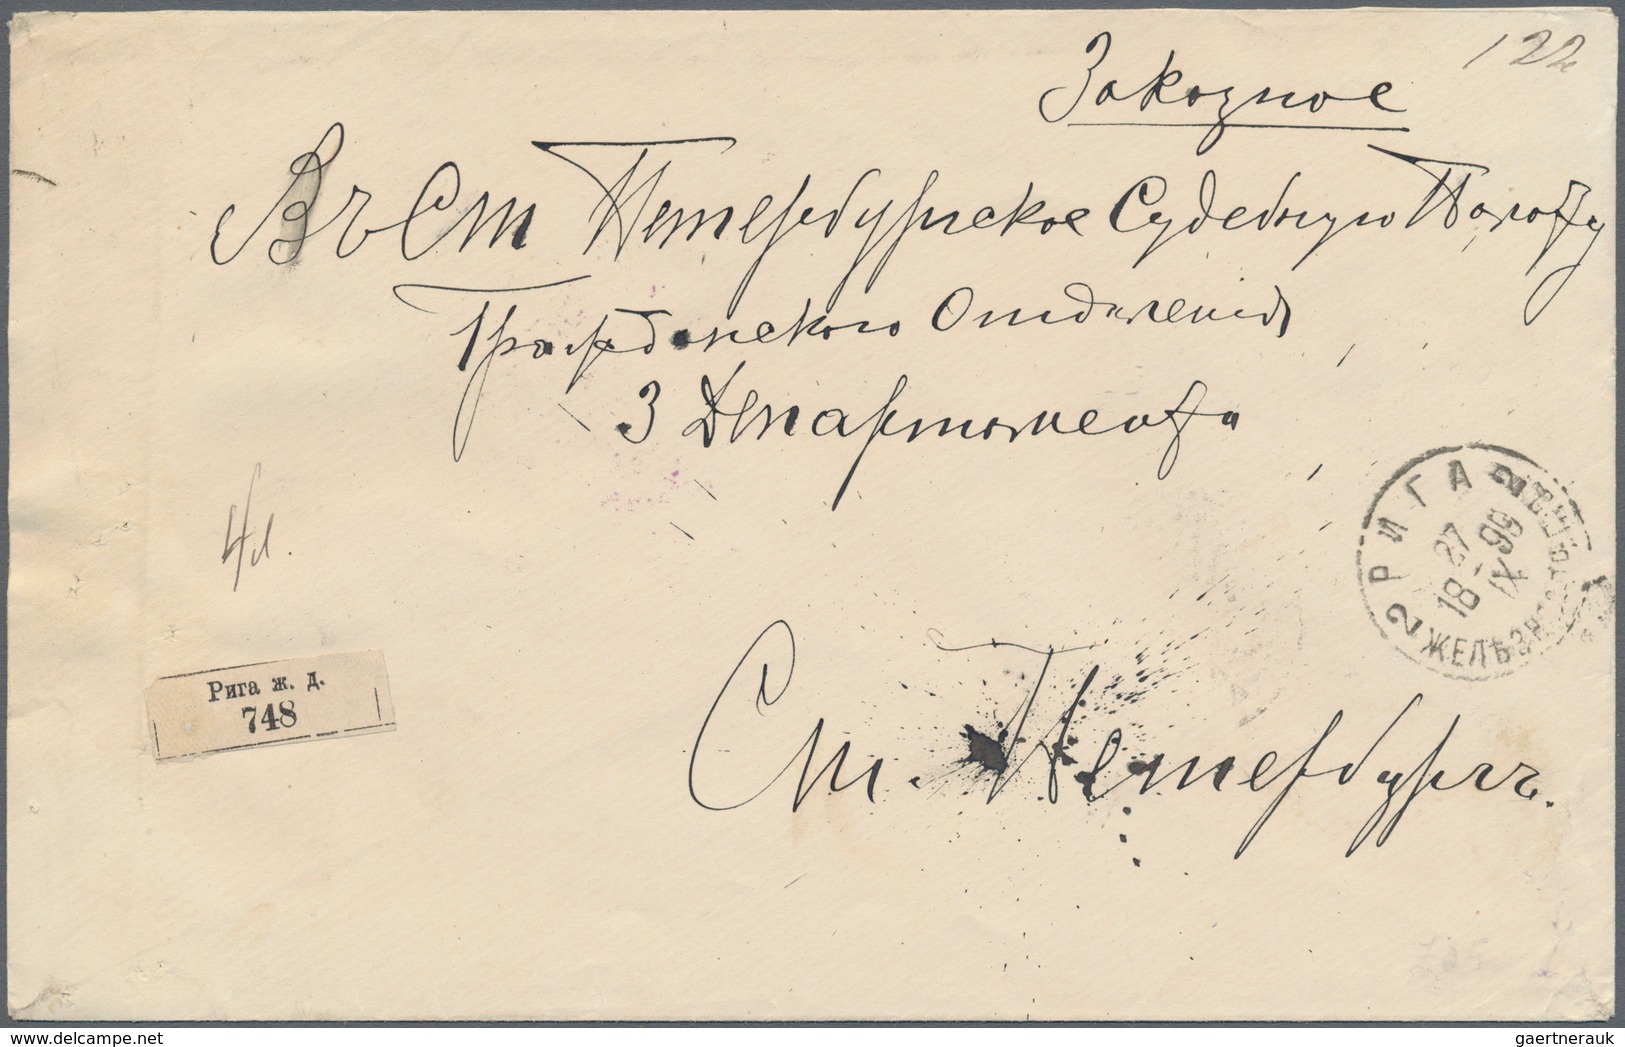 122
Заказное
Въ Ст Петербургское Судебную Палату
Гражданского Отдѣленія
3 Департамента
4 л.
2 РИГА 2
27
18 - 99
IX
ЖЕЛѢЗН.
Рига ж. д.
748
Ст. Петербургъ.
gaertnerauk